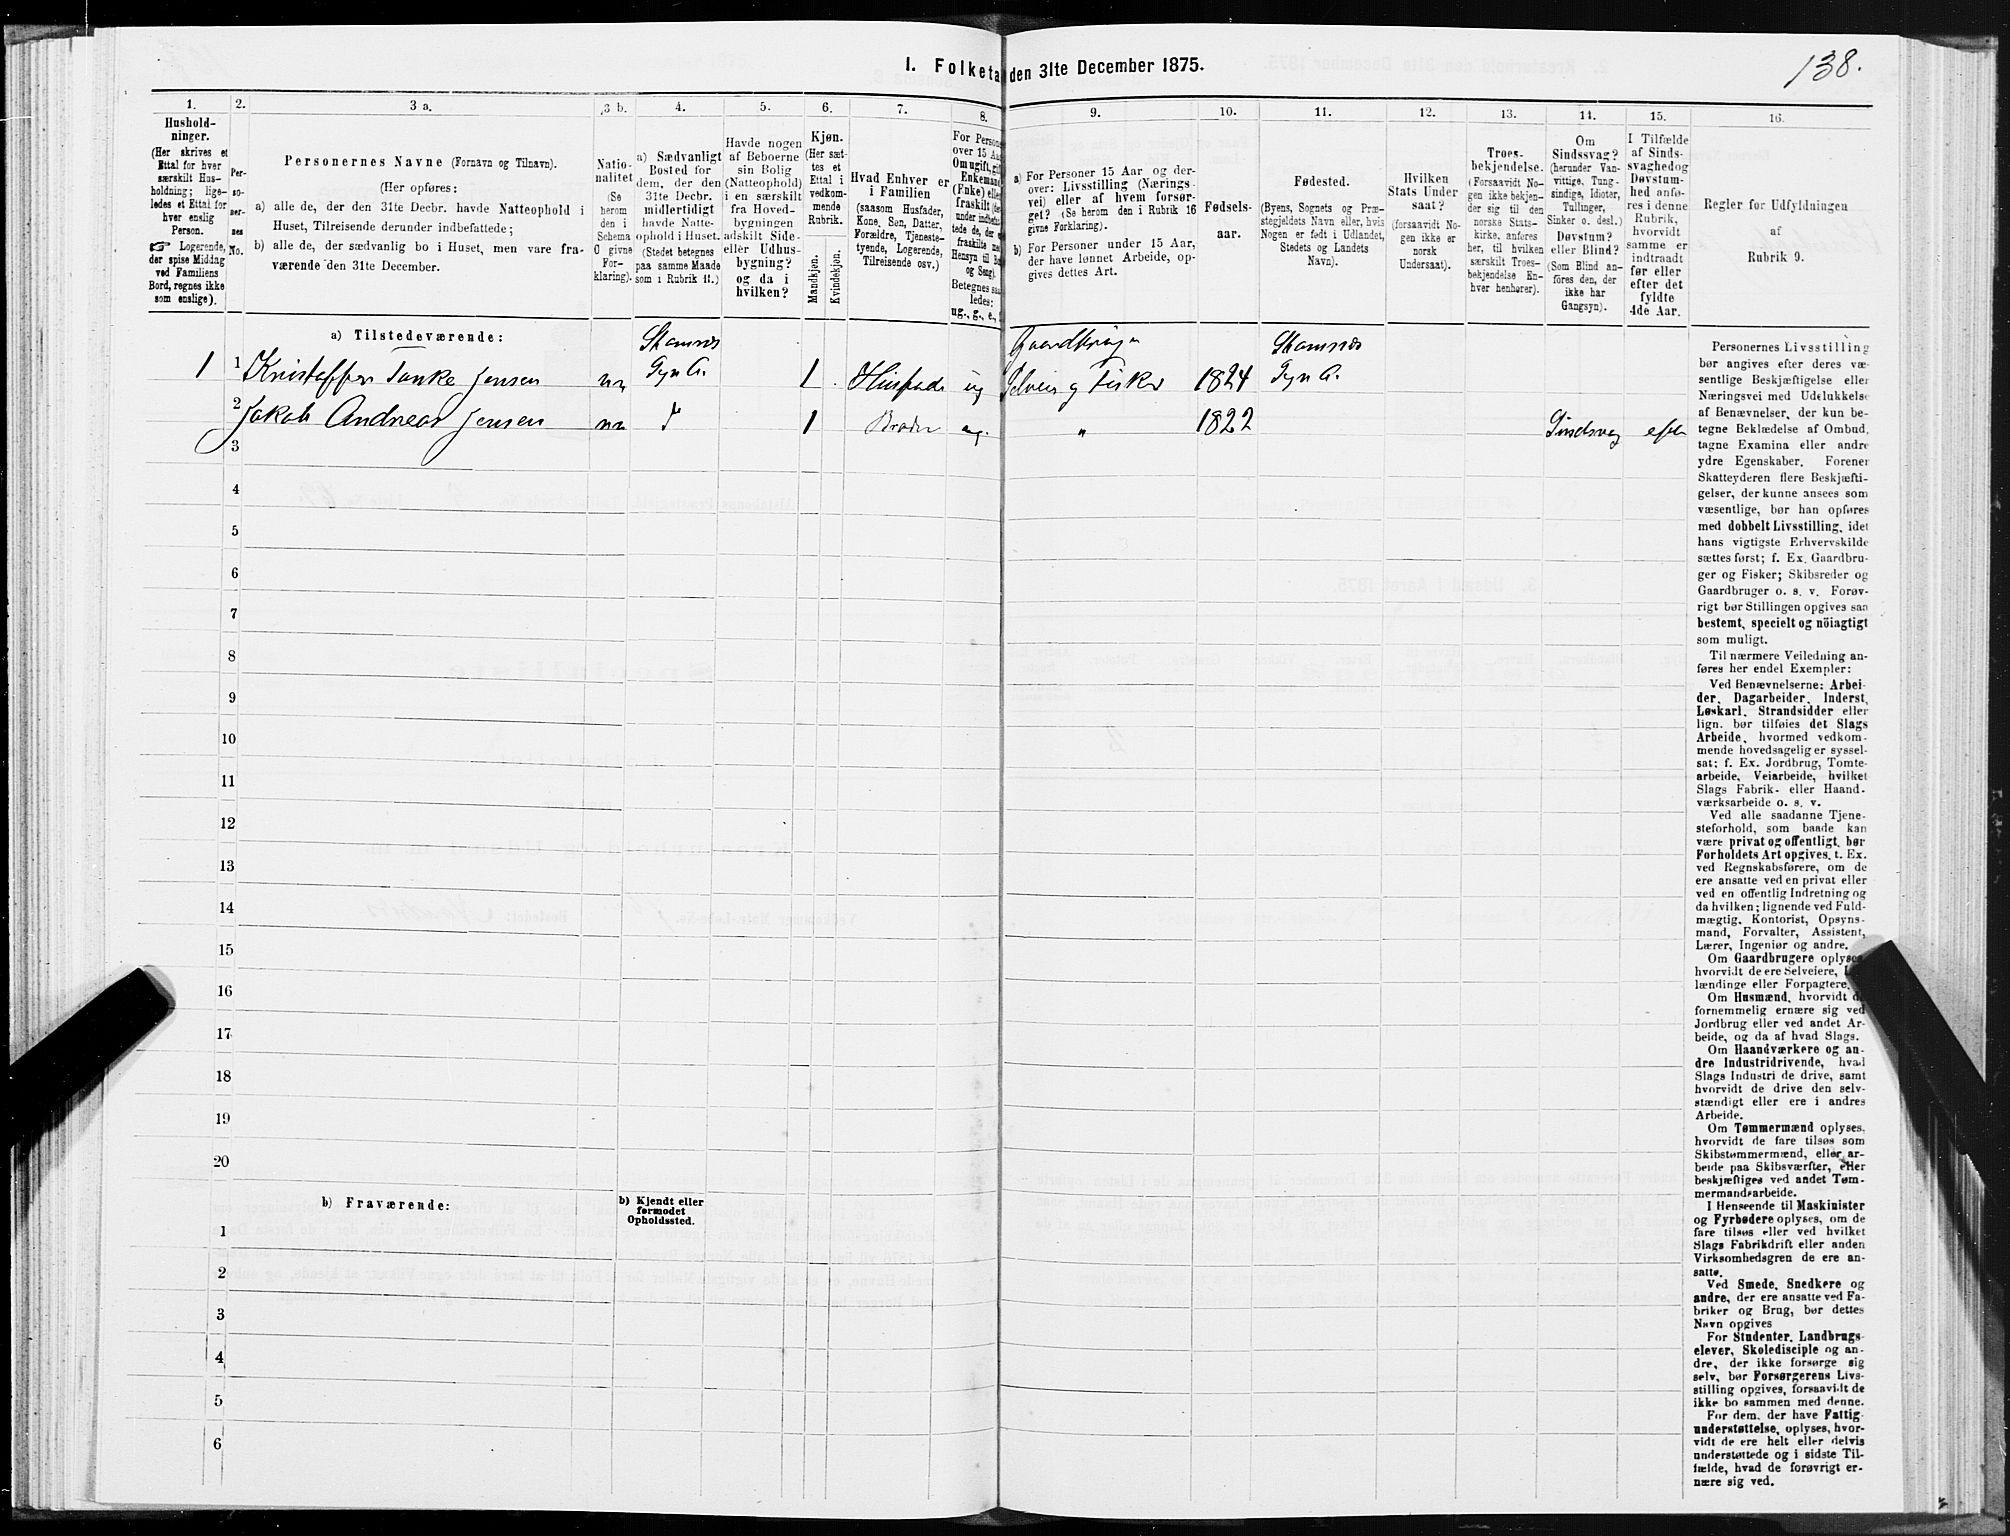 138.
I. Folketæ den 31te December 1875.
1. 2. 3 a. 3 b. 4. 5. 6. 7. 8. 9. 10. 11. 12. 13. 14. 15. 16.
Hushold-
ninger.
(Her skrives et
Ettal for hver
særskilt Hus-
holdning; lige-
ledes et Ettal for
hver enslig
Person.
☞ Logerende,
der spise Middag
ved Familiens
Bord, regnes ikke
som enslige).
Per-
so-
ner-
nes
No.
Personernes Navne (Fornavn og Tilnavn).
(Her opføres:
a) alle de, der den 31te Decbr. havde Natteophold i
Huset, Tilreisende derunder indbefattede;
b) alle de, der sædvanlig bo i Huset, men vare fra-
værende den 31te December.
Natio-
nalitet
(Se
herom
den i
Schema
O givne
For-
klaring).
a) Sædvanligt
Bosted for
dem, der den
31te Decbr.
midlertidigt
havde Natte-
ophold i Huset.
(Stedet betegnes
paa samme Maade
som i Rubrik 11.)
Havde nogen
af Beboerne
sin Bolig
(Natteophold)
i en særskilt
fra Hoved-
bygningen
adskilt Side-
eller Udhus-
bygning?
og da i
hvilken?
Kjøn.
(Her sæt-
tes et
Ettal i
vedkom-
mende
Rubrik.
Mandkjøn.
Kvindekjøn.
Hvad Enhver er
i Familien
(saasom Husfader,
Kone, Søn, Datter,
Forældre, Tjeneste-
tyende, Logerende,
Tilreisende osv.)
For Person
over 15 Aa
Omugift, gi
Enkemand
(Enke) elle
fraskilt
under indbe
tede de, der
fraskilte
Hensyn til Bo
og Seng).
Betegnes saa
ledes:
ug., g., e.,
a) For Personer 15 Aar og der-
over: Livsstilling (Nærings-
vei) eller af hvem forsør-
get? (Se herom den i Rubrik 16
givne Forklaring).
b) For Personer under 15 Aar,
der have lønnet Arbeide, op-
gives dettes Art.
Fødsels-
aar.
Fødested.
(Byens, Sognets og Præ-
stegjeldets Navn eller, hvis
Nogen er født i Udlandet,
Stedets og Landets
Navn).
Hvilken
Stats Under
saat?
(forsaavidt No-
gen ikke er
norsk
Undersaat).
Troes-
bekjendelse.
(Forsaavidt No-
gen ikke bekjen-
der sig til den
norske Stats-
kirke, anføres
her, til hvilken
særskilt Troes-
bekjendelse En-
hver henhører).
Om
Sindssvag?
(herunder Van-
vittige, Tung-
sindige, Idioter,
Tullinger,
Sinker o. desl.)
Døvstum?
eller Blind?
(Som Blind an-
føres den, der
ikke har
Gangsyn).
I Tilfælde
af Sinds-
svaghedog
Døvstum-
hed anfø-
res i denne
Rubrik,
hvorvidt
samme er
indtraadt
før eller
efter det
fyldte
4de Aar.
Regler for Udfyldningen
af
Rubrik 9.
a) Tilstedeværende:
1 1 Kristoffer Tanke Jensen nn Stamnes Tyn A. 1 Husfade ug Gaardbruge Selveier og Fisker 1824 Stamnes Tyn A.
2 Jakob Andreas Jensen nn 1 Broder ug. „ 1822 Sindsvag efter
3
4
5
6
7
8
9
10
11
12
13
14
15
16
17
18
19
20
b) Fraværende:
b) Kjendt eller
formodet
Opholdssted.
1
2
3
4
5
6
Personernes Livsstilling
bør angives efter deres væ-
sentlige Beskjæftigelse eller
Næringsvei med Udelukkelse
af Benævnelser, der kun be-
tegne Beklædelse af Ombud,
tagne Examina eller andre
ydre Egenskaber. Forener
Skatteyderen flere Beskjæfti-
gelser, der kunne ansees som
væsentlige, bør han opføres
med dobbelt Livsstilling, idet
hans vigtigste Erhvervskilde
sættes først; f. Ex. Gaardbru-
ger og Fisker; Skibsreder og
Gaardbruger o. s. v. Forøv-
rigt bør Stillingen opgives saa
bestemt, specielt og nöiagtigt
som muligt.
Til nærmere Veiledning an-
føres her endel Exempler:
Ved Benævnelserne: Arbei-
der, Dagarbeider, Inderst,
Løskarl, Strandsidder eller
lign. bør tilføies det Slags
Arbeide, hvormed vedkom-
mende hovedsagelig er syssel-
sat; f. Ex. Jordbrug, Tomte-
arbeide, Veiarbeide, hvilket
Slags Fabrik- eller Haand-
værksarbeide o. s. v.
Ved alle saadanne Tjene-
steforhold, som baade kan
være privat og offentligt, bør
Forholdets Art opgives, t. Ex.
ved Regnskabsførere, om de
ere ansatte ved en privat eller
ved en offentlig Indretning og
da hvilken; lignende ved Fuld-
mægtig, Kontorist, Opsyns-
mand, Forvalter, Assistent,
Lærer, Ingeniør og andre.
Om Gaardbrugere oplyses,
hvorvidt de ere Selveiere,
lændinge eller Forpagtere.
Om Husmænd, hvorvidt
fornemmelig ernære sig ved
Jordbrug eller ved andet Ar-
beide, og da af hvad Slags.
Om Haandværkere og an-
dre Industridrivende, hvad
Slags Industri de drive, samt
hvorvidt de drive den selv-
stændigt eller ere i andres
Arbeide.
Om Tømmermænd oplyses,
hvorvidt de fare tilsøs som
Skibstømmermænd, eller ar-
beide paa Skibsværfter, eller
beskjæftiges ved andet Tøm-
mermandsarbeide.
I Henseende til Maskinister
og Fyrbødere oplyses, om de
fare tilsøs eller ved hvilket
Slags Fabrikdrift eller anden
Virksomhedsgren de ere an-
satte.
Ved Smede, Snedkere og
andre, der ere ansatte ved Fa-
briker og Brug, bør dettes
Navn opgives
For Studenter, Landbrugs-
elever, Skoledisciple og an-
dre, der ikke forsørge sig
selv, bør Forsørgerens Livs-
stilling opgives, forsaavidt de
ikke bo sammen med denne.
For dem, der have Fattig-
understøttelse, oplyses, hvor-
vidt de ere helt eller delvis
understøttede og i sidste Til-
fælde, hvad de forøvrigt er-
nære sig ved.